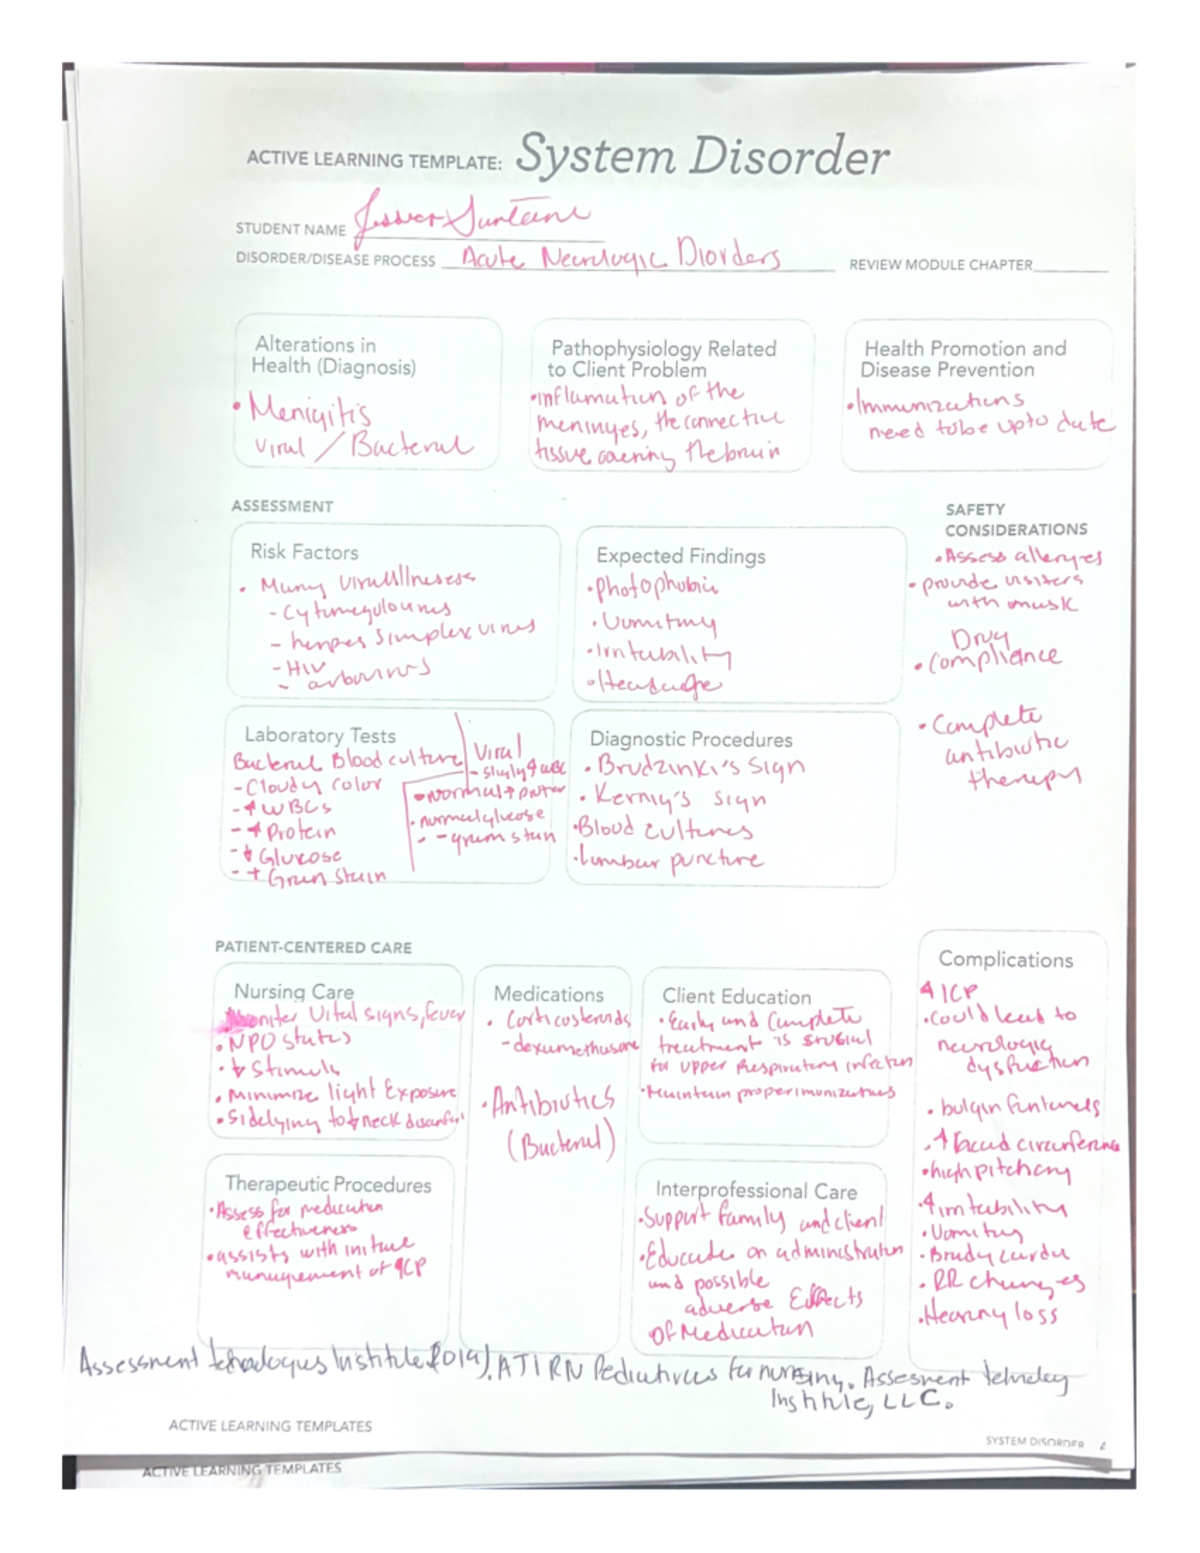 ACTIVE LEARNING TEMPLATE: System Disorder
STUDENT NAME
DISORDER/DISEASE PROCESS Acute Neurologic Diorders
REVIEW MODULE CHAPTER
Alterations in
Health (Diagnosis)
• Menigitis
Viral / Bacterial
Pathophysiology Related
to Client Problem
•inflamation of the
meninges, the connective
tissue covering the brain
Health Promotion and
Disease Prevention
•Immunizations
need to be up to date
ASSESSMENT
Risk Factors
• Many viral Illnesses
- Cytomegalovirus
- herpes simplex virus
- HIV
- arbovirus
Expected Findings
•Photophobia
•Vomiting
•Irritability
•Headache
SAFETY
CONSIDERATIONS
•Assess allergies
• provide visiters
with mask
Drug
• Compliance
• Complete
antibiotic
therapy
Laboratory Tests
Bacterial Blood culture
- Cloudy color
- ↑ WBCs
- ↑ Protein
- ↓ Glucose
- + Gram Stain
Viral
- slightly ↑ WBC
•normal ↑ protein
•normal glucose
• - gram stain
Diagnostic Procedures
• Brudzinki's Sign
• Kernig's sign
•Blood cultures
•lumbar puncture
PATIENT-CENTERED CARE
Nursing Care
Moniter Vital signs, fever
• NPO status
• ↓ Stimuli
• Minimize light Exposure
• Sidelying to ↓ neck discomfort
Medications
• Corticosteroids
- dexamethasone
• Antibiotics
(Bacterial)
Client Education
• Early and Complete
treatment is crucial
for Upper Respiratory infection
•Maintain proper imunizations
Complications
↑ ICP
•Could lead to
neurologic
dysfunction
• bulgin fontanels
• ↑ facial circumference
•high pitch cry
•↑ irritability
•Vomiting
•Bradycardia
• RR changes
•Hearing loss
Therapeutic Procedures
•Assess for medication
effectiveness
•assists with initial
management of ↑ICP
Interprofessional Care
•Support family and client
•Educate on administration
and possible
adverse Effects
of Medication
Assessment Institute (2019). ATI RN Pediatrics for nursing. Assesment
Institute, LLC.
ACTIVE LEARNING TEMPLATES
SYSTEM DISORDER
ACTIVE LEARNING TEMPLATES